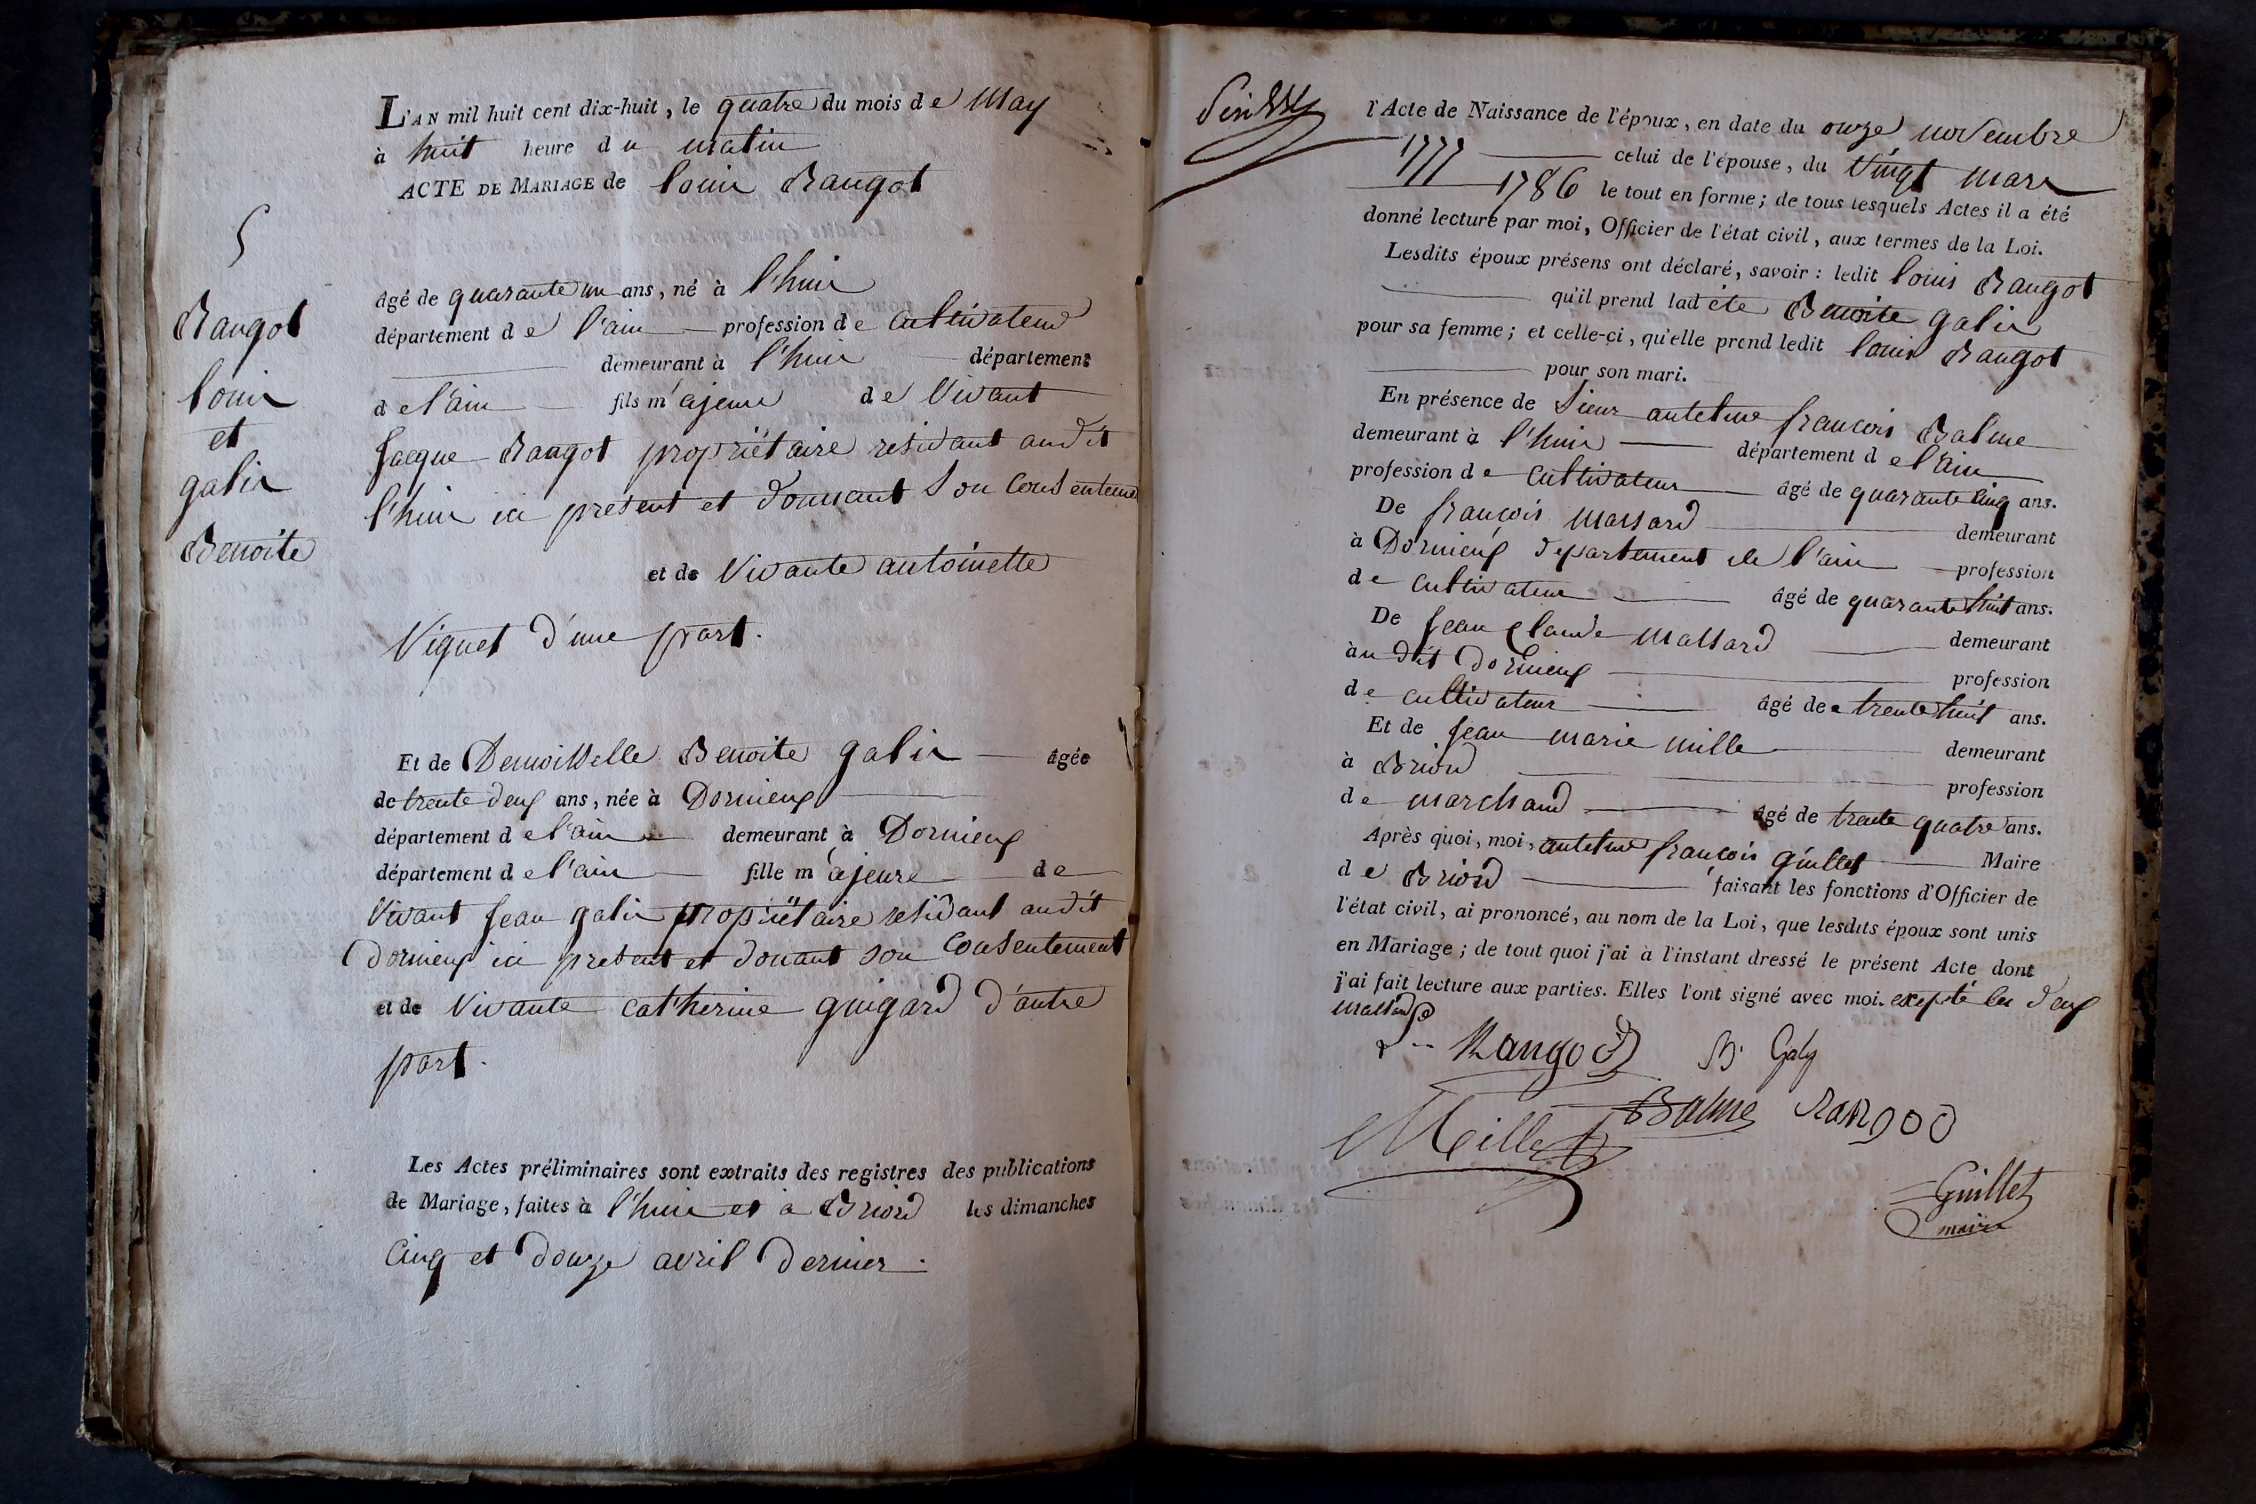 L'AN mil huit cent dix-huit, le quatre du mois de May
à huit heure du matin
ACTE DE MARIAGE de louis Rangot
5
Rangot
louis
et
galis
Benoite
âgé de quarante un ans, né à l'huis
département de l'ain profession de cultivateur
demeurant à l'huis département
de l'ain fils majeur de vivant
Jacque Rangot propriétaire residant audit
l'huis ici présent et donnant son consenteme
et de vivante antoinette
Viguet d'une part.
Et de Demoisselle Benoite galis âgée
de trente deux ans, née à Dornieux
département de l'ain demeurant à Dornieux
département de l'ain fille majeure de
vivant Jean galis propriétaire residant audit
dornieux ici present et donant son consentement
et de vivante catherine guigard d'autre
part.
Les Actes préliminaires sont extraits des registres des publications
de Mariage, faites à l'huis et à Briord les dimanches
cinq et douze avril dernier.
l'Acte de Naissance de l'époux, en date du onze novembre
1777 celui de l'épouse, du vingt mars
1786 le tout en forme; de tous lesquels Actes il a été
donné lecture par moi, Officier de l'état civil, aux termes de la Loi.
Lesdits époux présens ont déclaré, savoir : ledit louis Rangot
qu'il prend ladite Benoite galis
pour sa femme; et celle-ci, qu'elle prend ledit louis Rangot
pour son mari.
En présence de Sieur antelme françois Balme
demeurant à l'huis département de l'ain
profession de cultivateur âgé de quarante cinq ans.
De françois massard demeurant
à Dornieux département de l'ain profession
de cultivateur âgé de quarante huit ans.
De Jean claude massard demeurant
au dit dornieux profession
de cultivateur âgé de trente huit ans.
Et de Jean marie mille demeurant
à Briord profession
de marchand âgé de trente quatre ans.
Après quoi, moi, antelme françois guillet Maire
de Briord faisant les fonctions d'Officier de
l'état civil, ai prononcé, au nom de la Loi, que lesdits époux sont unis
en Mariage; de tout quoi j'ai à l'instant dressé le présent Acte dont
j'ai fait lecture aux parties. Elles l'ont signé avec moi. exepté les deux
massard
Rangod B. Galy
Mille Balme rangod
Guillet
maire